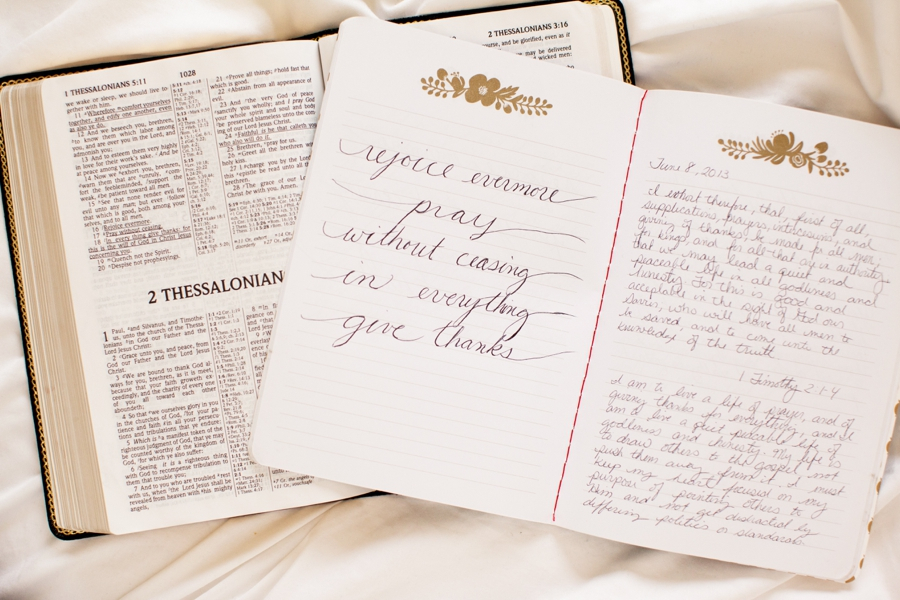 1 THESSALONIANS 5:11
1028
we wake or sleep, we should live to-
gether with him.
11 Wherefore comfort yourselves
together, and edify one another, even
as also ye do.
12 And we beseech you, brethren,
to know them which labor among
you, and are over you in the Lord, and
admonish you;
13 And to esteem them very highly
in love for their work's sake. And be
at peace among yourselves.
14 Now we exhort you, brethren,
warn them that are unruly, com-
fort the feebleminded, support the
weak, be patient toward all men.
15 See that none render evil for
evil unto any man; but ever follow
that which is good, both among your-
selves, and to all men.
16 Rejoice evermore.
17 Pray without ceasing.
18 In every thing give thanks: for
this is the will of God in Christ Jesus
concerning you.
19 Quench not the Spirit.
20 Despise not prophesyings.
21 Prove all things; hold fast that
which is good.
22 Abstain from all appearance of
evil.
23 And the very God of peace
sanctify you wholly; and I pray God
your whole spirit and soul and body
be preserved blameless unto the com-
ing of our Lord Jesus Christ.
24 Faithful is he that calleth you,
who also will do it.
25 Brethren, pray for us.
26 Greet all the brethren with
holy kiss.
27 I charge you by the Lord
this epistle be read unto all the
brethren.
28 The grace of our Lord
Christ be with you. Amen.
2 THESSALONIAN
1 Paul, and Silvanus, and Timothe-
us, unto the church of the Thessa-
lonians in God our Father and the
Lord Jesus Christ:
2 Grace unto you, and peace, from
God our Father and the Lord Jesus
Christ.
3 We are bound to thank God al-
ways for you, brethren, as it is meet,
because that your faith groweth ex-
ceedingly, and the charity of every one
of you all toward each other
aboundeth;
4 So that we ourselves glory in you
in the churches of God, for your pa-
tience and faith in all your persecu-
tions and tribulations that ye endure:
5 Which is a manifest token of the
righteous judgment of God, that ye may
be counted worthy of the kingdom of
God, for which ye also suffer:
6 Seeing it is a righteous thing
with God to recompense tribulation to
them that trouble you;
7 And to you who are troubled rest
with us, when the Lord Jesus shall be
revealed from heaven with his mighty
angels,
2 THESSALONIANS 3:16
and be glorified, even as it
may be delivered
wicked men:
rejoice evermore
pray
without ceasing
in everything
give thanks
June 8, 2013
I exhort therefore, that, first of all,
supplications, prayers, intercessions, and
giving of thanks, be made for all men;
for kings, and for all that are in authority;
that we may lead a quiet and
peaceable life in all godliness and
honesty. For this is good and
acceptable in the sight of God our
Savior, who will have all men to
be saved, and to come unto the
knowledge of the truth.
1 Timothy 2:1-4
I am to live a life of prayer, and of
giving thanks for everything, and I
am to live a quiet peacable life of
godliness and honesty. My life is
to draw others to the gospel, not
push them away from it. I must
keep my heart focused on my
purpose of pointing others to
Him and not get distracted by
differing politics or standards.